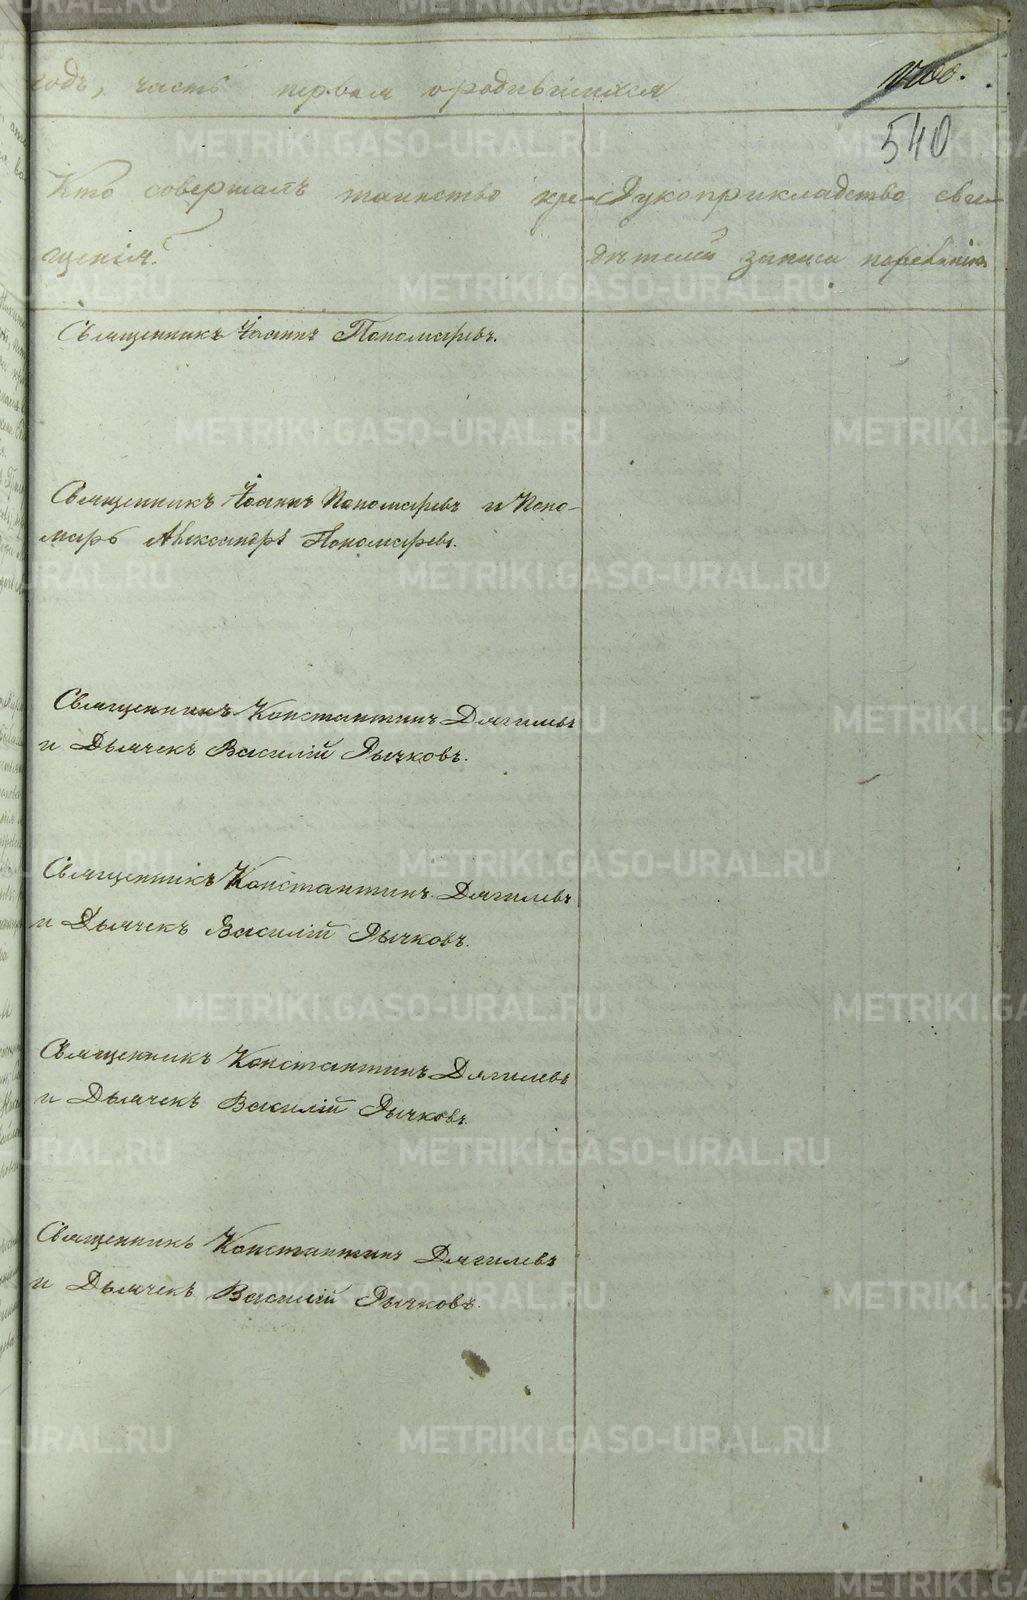 годъ, часть первая о родившихся
540
Кто совершалъ таинство кре-
щенія?
Рукоприкладство сви-
дѣтелей записи по желанію.
Священникъ Іоаннъ Пономаревъ.
Священникъ Іоаннъ Пономаревъ и Поно-
марь Александръ Пономаревъ.
Священникъ Константинъ Дягилевъ
и Дьячекъ Василій Рычковъ.
Священникъ Константинъ Дягилевъ
и Дьячекъ Василій Рычковъ.
Священникъ Константинъ Дягилевъ
и Дьячекъ Василій Рычковъ.
Священникъ Константинъ Дягилевъ
и Дьячекъ Василій Рычковъ.
METRIKI.GASO-URAL.RU